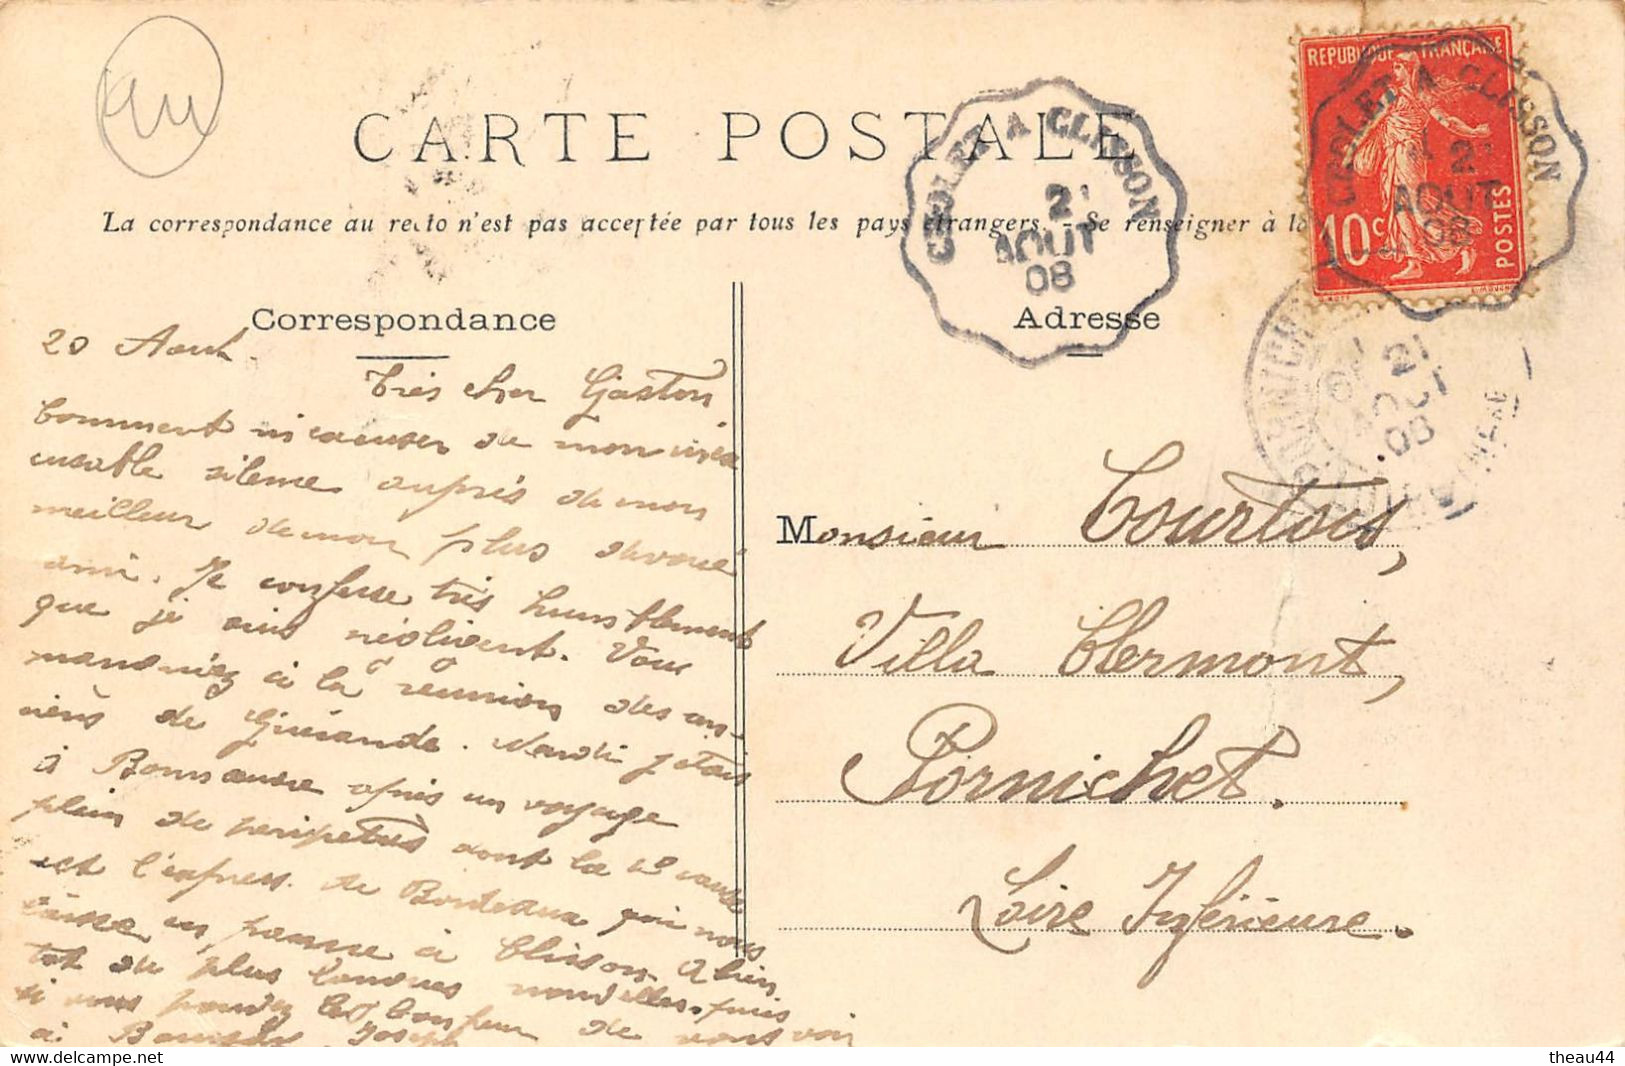 CARTE POSTALE
La correspondance au recto n'est pas acceptée par tous les pays étrangers. - Se renseigner à la
Correspondance
20 Aout.
Très cher Gaston
Comment m'excuser de mon inex
cusable silence auprès de mon
meilleur de mon plus dévoué
ami. Je confesse très humblement
que je suis négligent. Vous
manquiez à la réunion des an-
ciens de Guérande. Mardi j'étais
à après un voyage
plein de péripéties dont la cause
est l'express de Bordeaux qui nous
laisse en panne à Clisson. A bien
tôt de plus longues nouvelles, puis
si vous pouvez le bonheur de vous voir
à Joseph
Adresse
Monsieur Courtois,
Villa Clermont,
Pornichet.
Loire Inférieure.
REPUBLIQUE FRANÇAISE
10 c
POSTES
CHOLET A CLISSON
21
AOUT
08
CHOLET A CLISSON
2
AOUT
08
PORNICHET
21
AOUT
08
delcampe.net
theau44